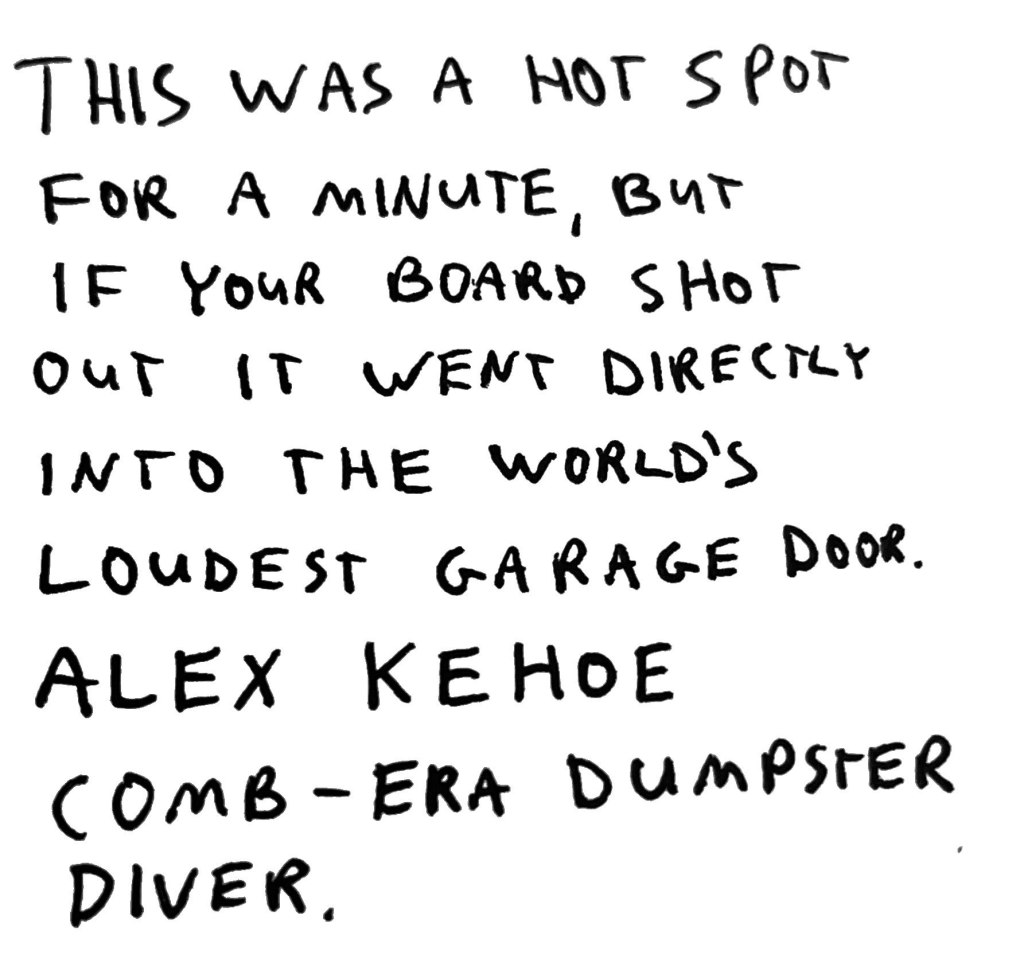 THIS WAS A HOT SPOT
FOR A MINUTE, BUT
IF YOUR BOARD SHOT
OUT IT WENT DIRECTLY
INTO THE WORLD'S
LOUDEST GARAGE DOOR.
ALEX KEHOE
COMB-ERA DUMPSTER
DIVER.